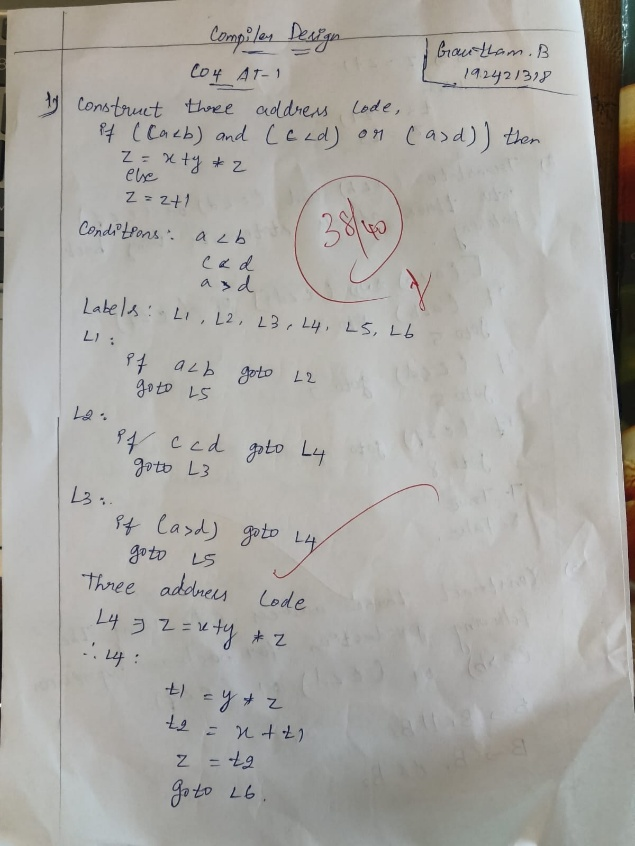 Compiler Design
Gautham.B
192421318
CO4 AT-1
1) Construct three address Code,
if ((a<b) and (c<d) or (a>d)) then
z = x+y * z
else
z = z+1
38/40
Conditions: a < b
c < d
a > d
Labels: L1, L2, L3, L4, L5, L6
L1:
if a<b goto L2
goto L5
L2:
if c<d goto L4
goto L3
L3:
if (a>d) goto L4
goto L5
Three address Code
L4 ⇒ z = x+y * z
∴ L4:
t1 = y * z
t2 = x + t1
z = t2
goto L6.